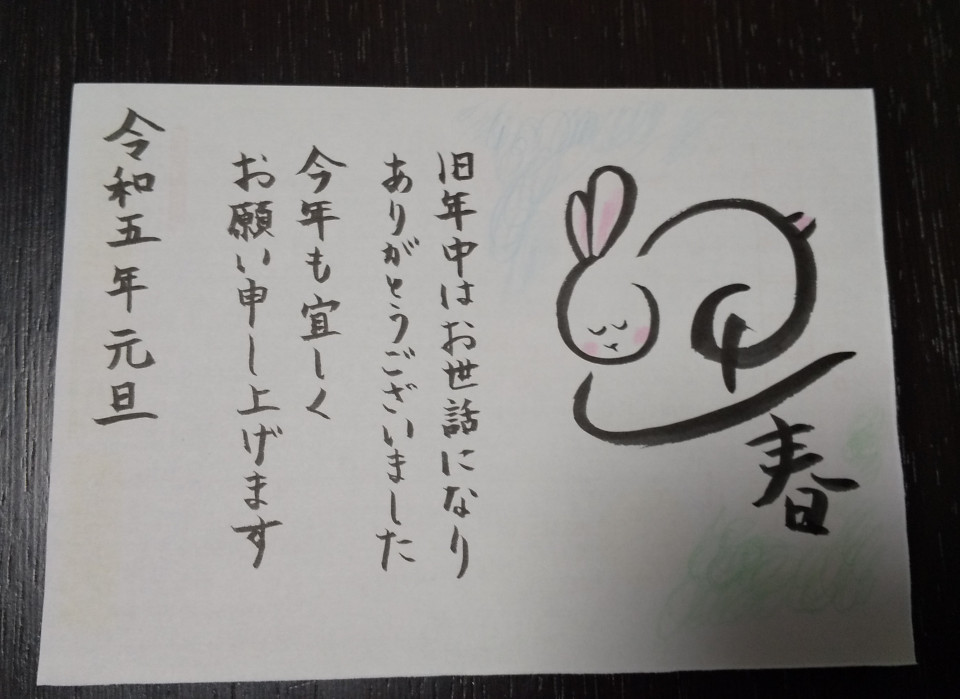 春
旧年中はお世話になり
ありがとうございました
今年も宜しく
お願い申し上げます
令和五年元旦